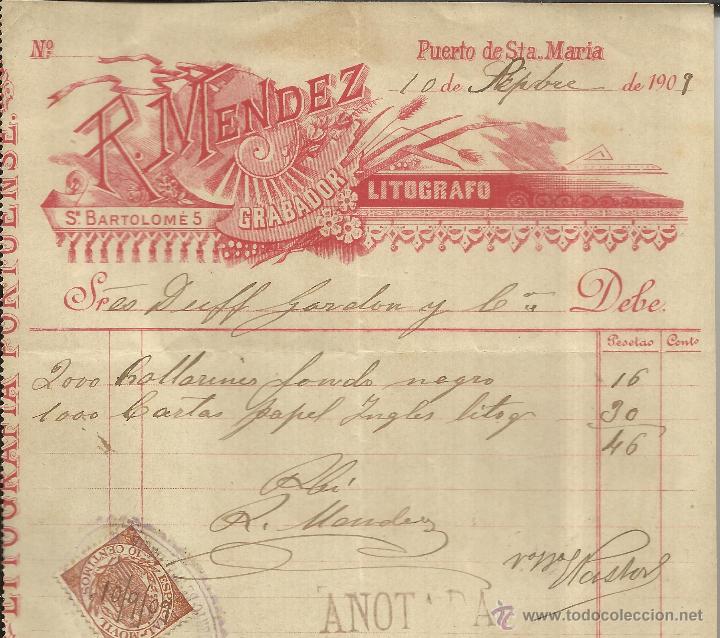 Nº
Puerto de Sta. Maria
10 de Sepbre de 1909
R. MENDEZ
GRABADOR
LITOGRAFO
Sn BARTOLOMÉ 5
LITOGRAFIA PORTUENSE.
Sres Duff Gordon y Cª Debe.
Pesetas Cents
2000 Collarines fondo negro 16
1000 Cartas papel Ingles litog 30
46
Rbi
R. Mendez
Vº Bº Pastor
ESPECIAL MOVIL
10 CENTIMOS
10/9/9
ANOTADA
www.todocoleccion.net